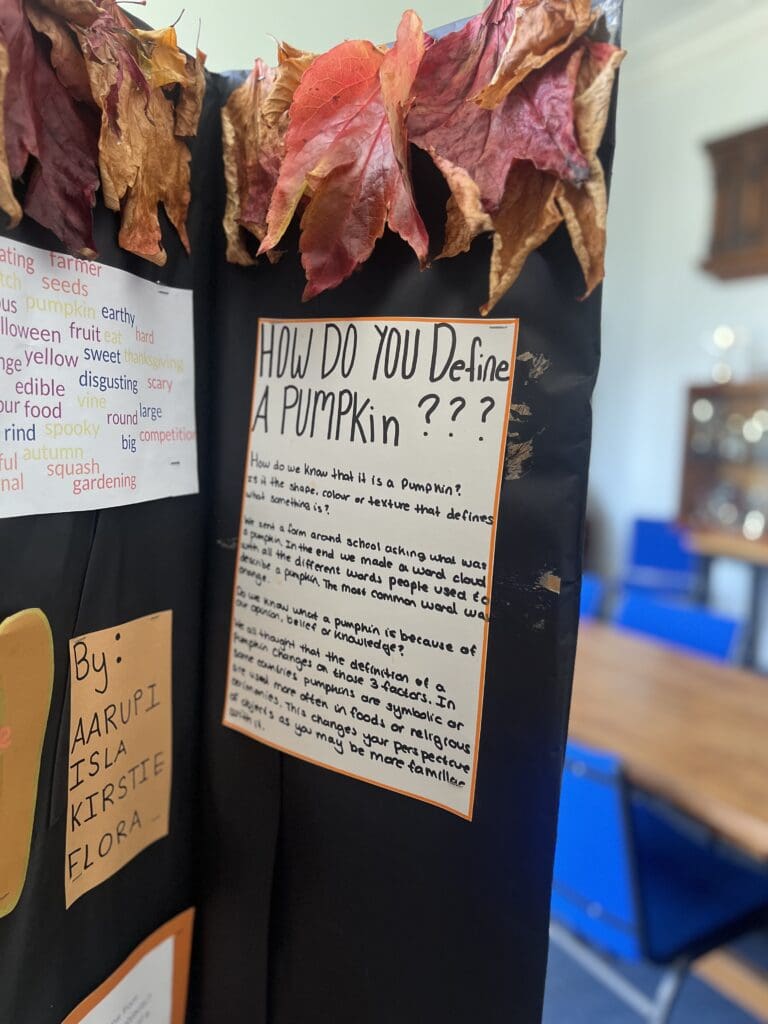 ating farmer
tch seeds
ous pumpkin earthy
lloween fruit eat hard
nge yellow sweet thanksgiving
edible disgusting scary
our food vine round large
rind spooky big competition
ful autumn
nal squash
gardening
By:
AARUPI
ISLA
KIRSTIE
FLORA
HOW DO YOU Define
A PUMPKin ???
How do we know that it is a Pumpkin?
Is it the shape, colour or texture that defines
what something is?
We sent a form around school asking what was
a pumpkin. In the end we made a word cloud
with all the different words people used to
describe a pumpkin. The most common word was
orange.
Do we know what a pumpkin is because of
our opinion, belief or knowledge?
We all thought that the definition of a
pumpkin changes on those 3 factors. In
some countries pumpkins are symbolic or
are used more often in foods or religious
cerimonies. This changes your perspective
of objects as you may be more familiar
with it.